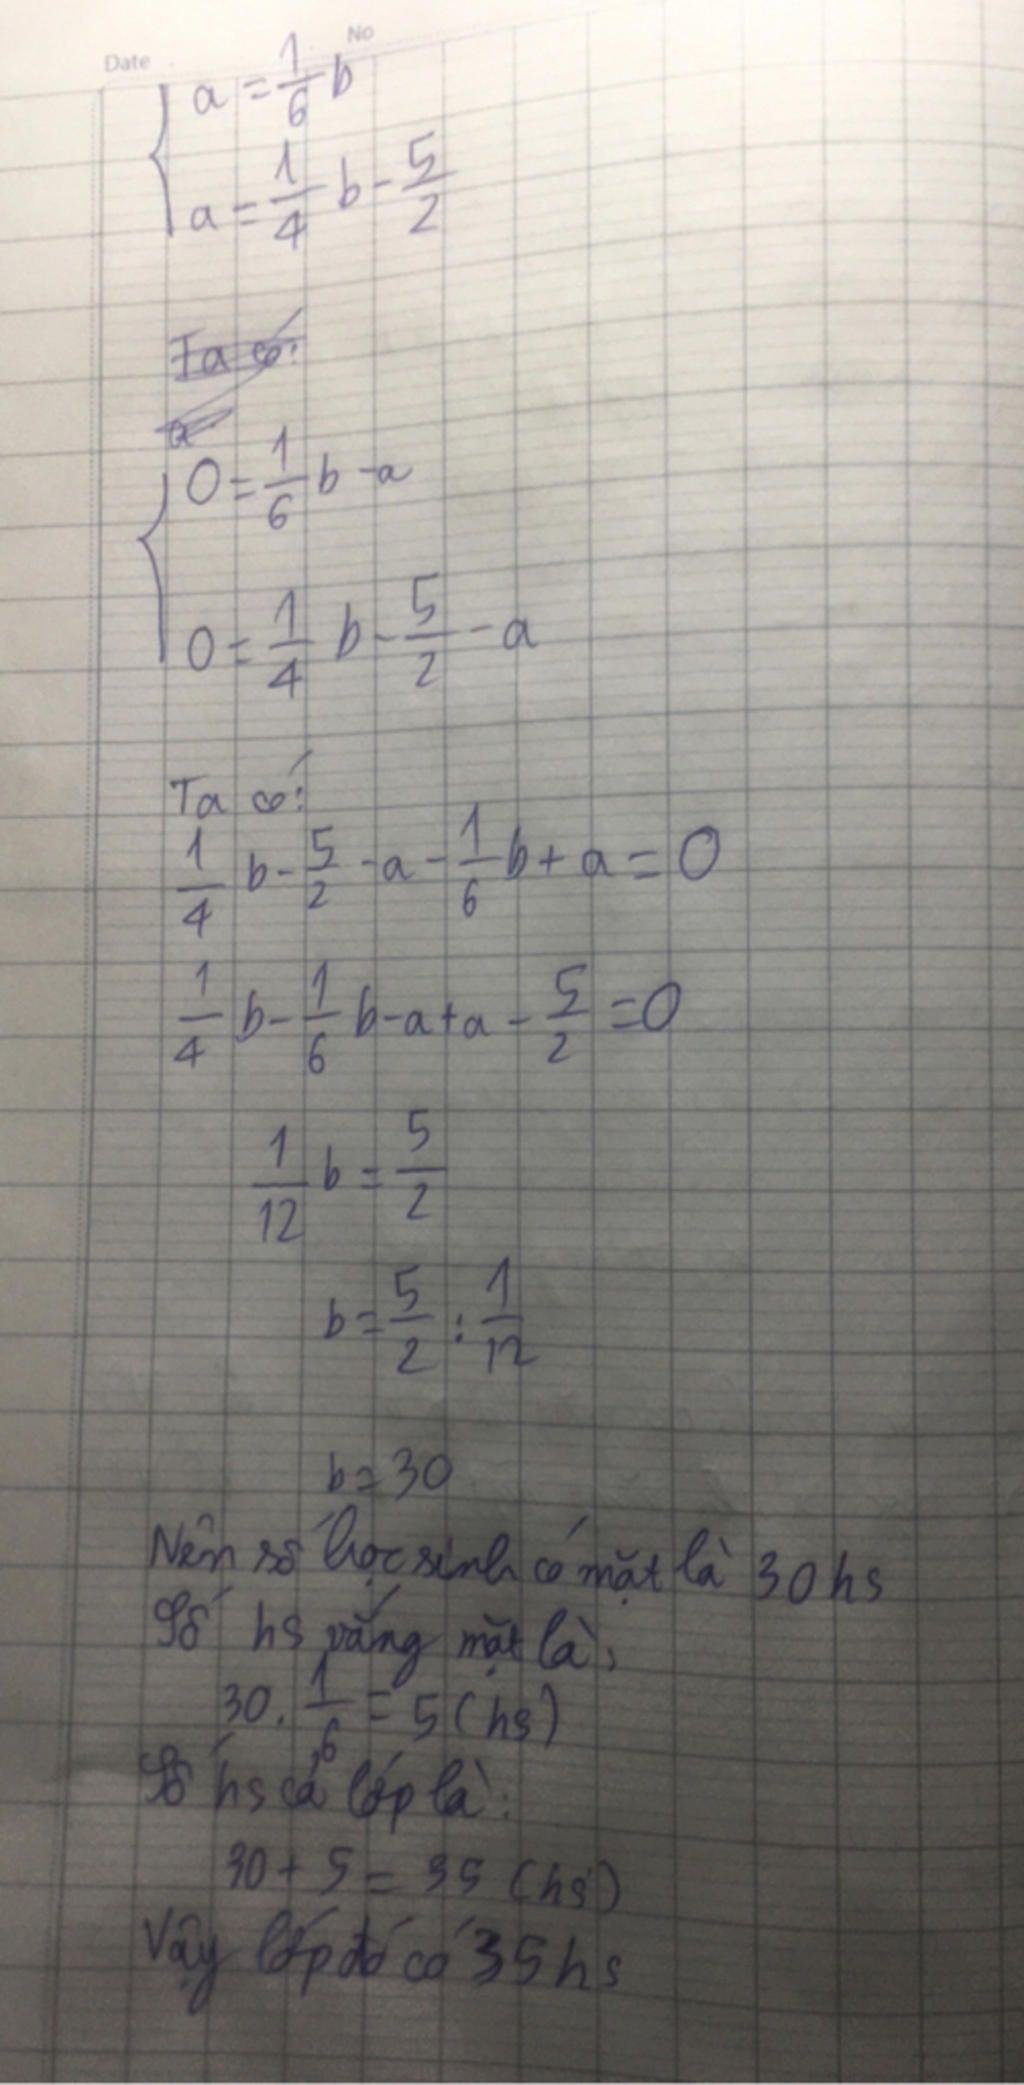 Date No
a = 1/6 b
a = 1/4 b - 5/2
Ta có:
a
0 = 1/6 b - a
0 = 1/4 b - 5/2 - a
Ta có:
1/4 b - 5/2 - a - 1/6 b + a = 0
1/4 b - 1/6 b - a + a - 5/2 = 0
1/12 b = 5/2
b = 5/2 : 1/12
b = 30
Nên số học sinh có mặt là 30 hs
Số hs vắng mặt là:
30. 1/6 = 5 (hs)
Số hs cả lớp là:
30 + 5 = 35 (hs)
Vậy lớp đó có 35 hs